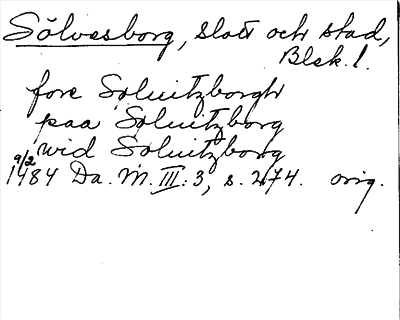 Sölvesborg, slott och stad,
Blek. l.
fore Soluitzborgh
paa Soluitzborg
wid Soluitzborg
9/2
1484 Da. M. III: 3, s. 274. orig.